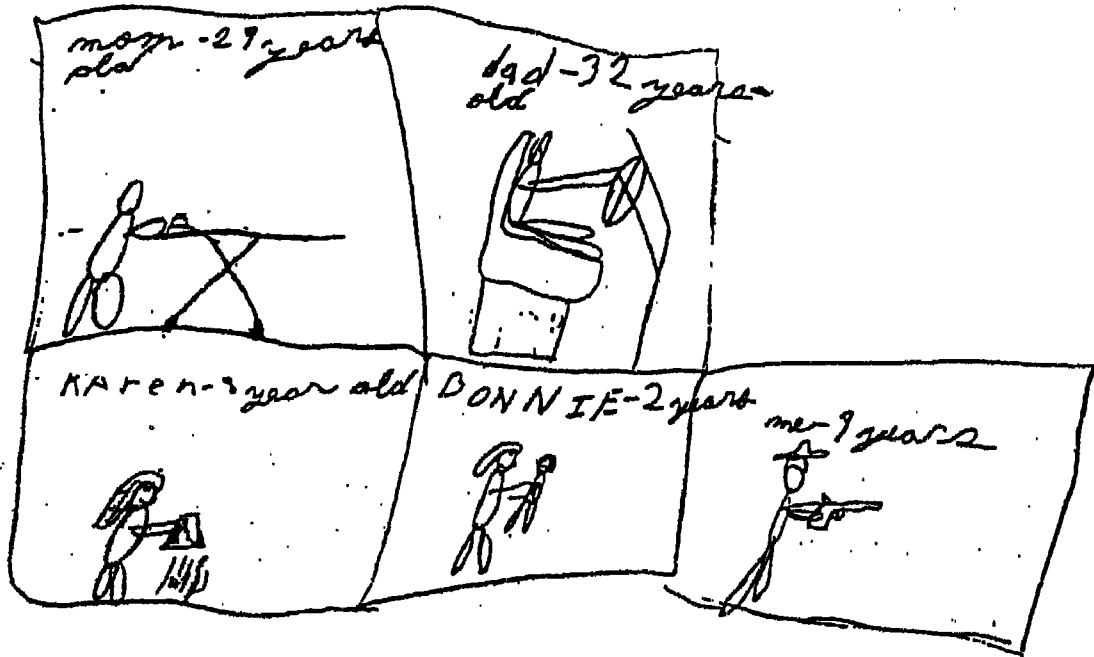 mom -29 years
old
dad -32 years
old
KAren-8 year old
DONNIE-2 years
me-9 years